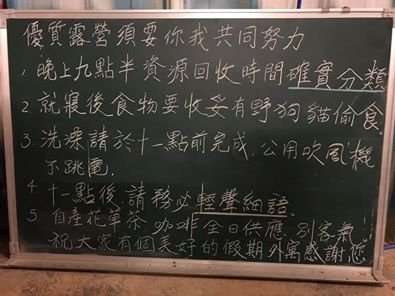 優質露營須要你我共同努力
1. 晚上九點半資源回收時間確實分類
2. 就寢後食物要收妥有野狗貓偷食.
3. 洗澡請於十一點前完成.公用吹風機
不跳電.
4. 十一點後.請務必輕聲細語.
5. 自產花草茶 咖啡全日供應.別客氣!
祝大家有個美好的假期 外寓感謝您